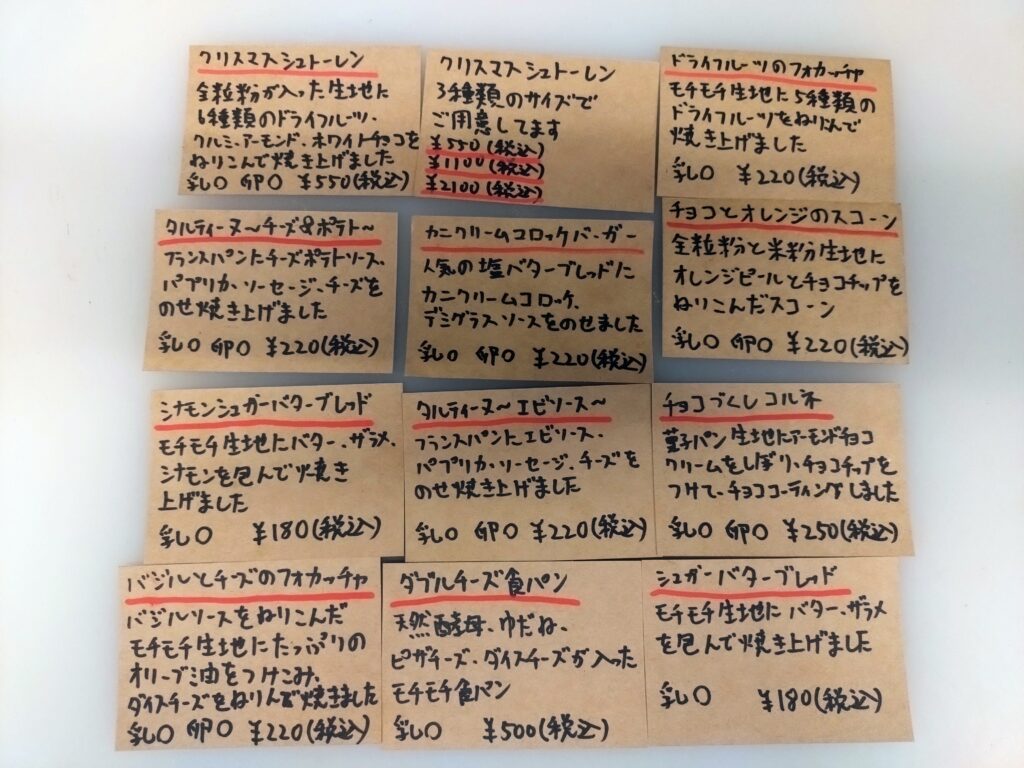 クリスマスシュトーレン
全粒粉が入った生地に
6種類のドライフルーツ、
クルミ、アーモンド、ホワイトチョコを
ねりこんで焼き上げました
乳○ 卵○ ¥550(税込)
クリスマスシュトーレン
3種類のサイズで
ご用意してます
¥550(税込)
¥1100(税込)
¥2100(税込)
ドライフルーツのフォカッチャ
モチモチ生地に5種類の
ドライフルーツをねりこんで
焼き上げました
乳○ ¥220(税込)
タルティーヌ～チーズ&ポテト～
フランスパンにチーズポテトソース、
パプリカ、ソーセージ、チーズを
のせ焼き上げました
乳○ 卵○ ¥220(税込)
カニクリームコロッケバーガー
人気の塩バターブレッドに
カニクリームコロッケ、
デミグラスソースをのせました
乳○ 卵○ ¥220(税込)
チョコとオレンジのスコーン
全粒粉と米粉生地に
オレンジピールとチョコチップを
ねりこんだスコーン
乳○ 卵○ ¥220(税込)
シナモンシュガーバターブレッド
モチモチ生地にバター、ザラメ、
シナモンを包んで焼き
上げました
乳○ ¥180(税込)
タルティーヌ～エビソース～
フランスパンにエビソース、
パプリカ、ソーセージ、チーズを
のせ焼き上げました
乳○ 卵○ ¥220(税込)
チョコづくしコルネ
菓子パン生地にアーモンドチョコ
クリームをしぼり、チョコチップを
つけて、チョココーティングしました
乳○ 卵○ ¥250(税込)
バジルとチーズのフォカッチャ
バジルソースをねりこんだ
モチモチ生地にたっぷりの
オリーブ油をつけこみ、
ダイスチーズをねりんで焼きました
乳○ 卵○ ¥220(税込)
ダブルチーズ食パン
天然酵母、ゆだね、
ピザチーズ、ダイスチーズが入った
モチモチ食パン
乳○ ¥500(税込)
シュガーバターブレッド
モチモチ生地にバター、ザラメ
を包んで焼き上げました
乳○ ¥180(税込)